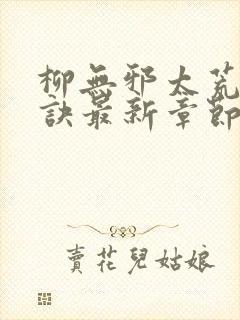 柳無邪太荒
訣最新章節
賣花兒姑娘